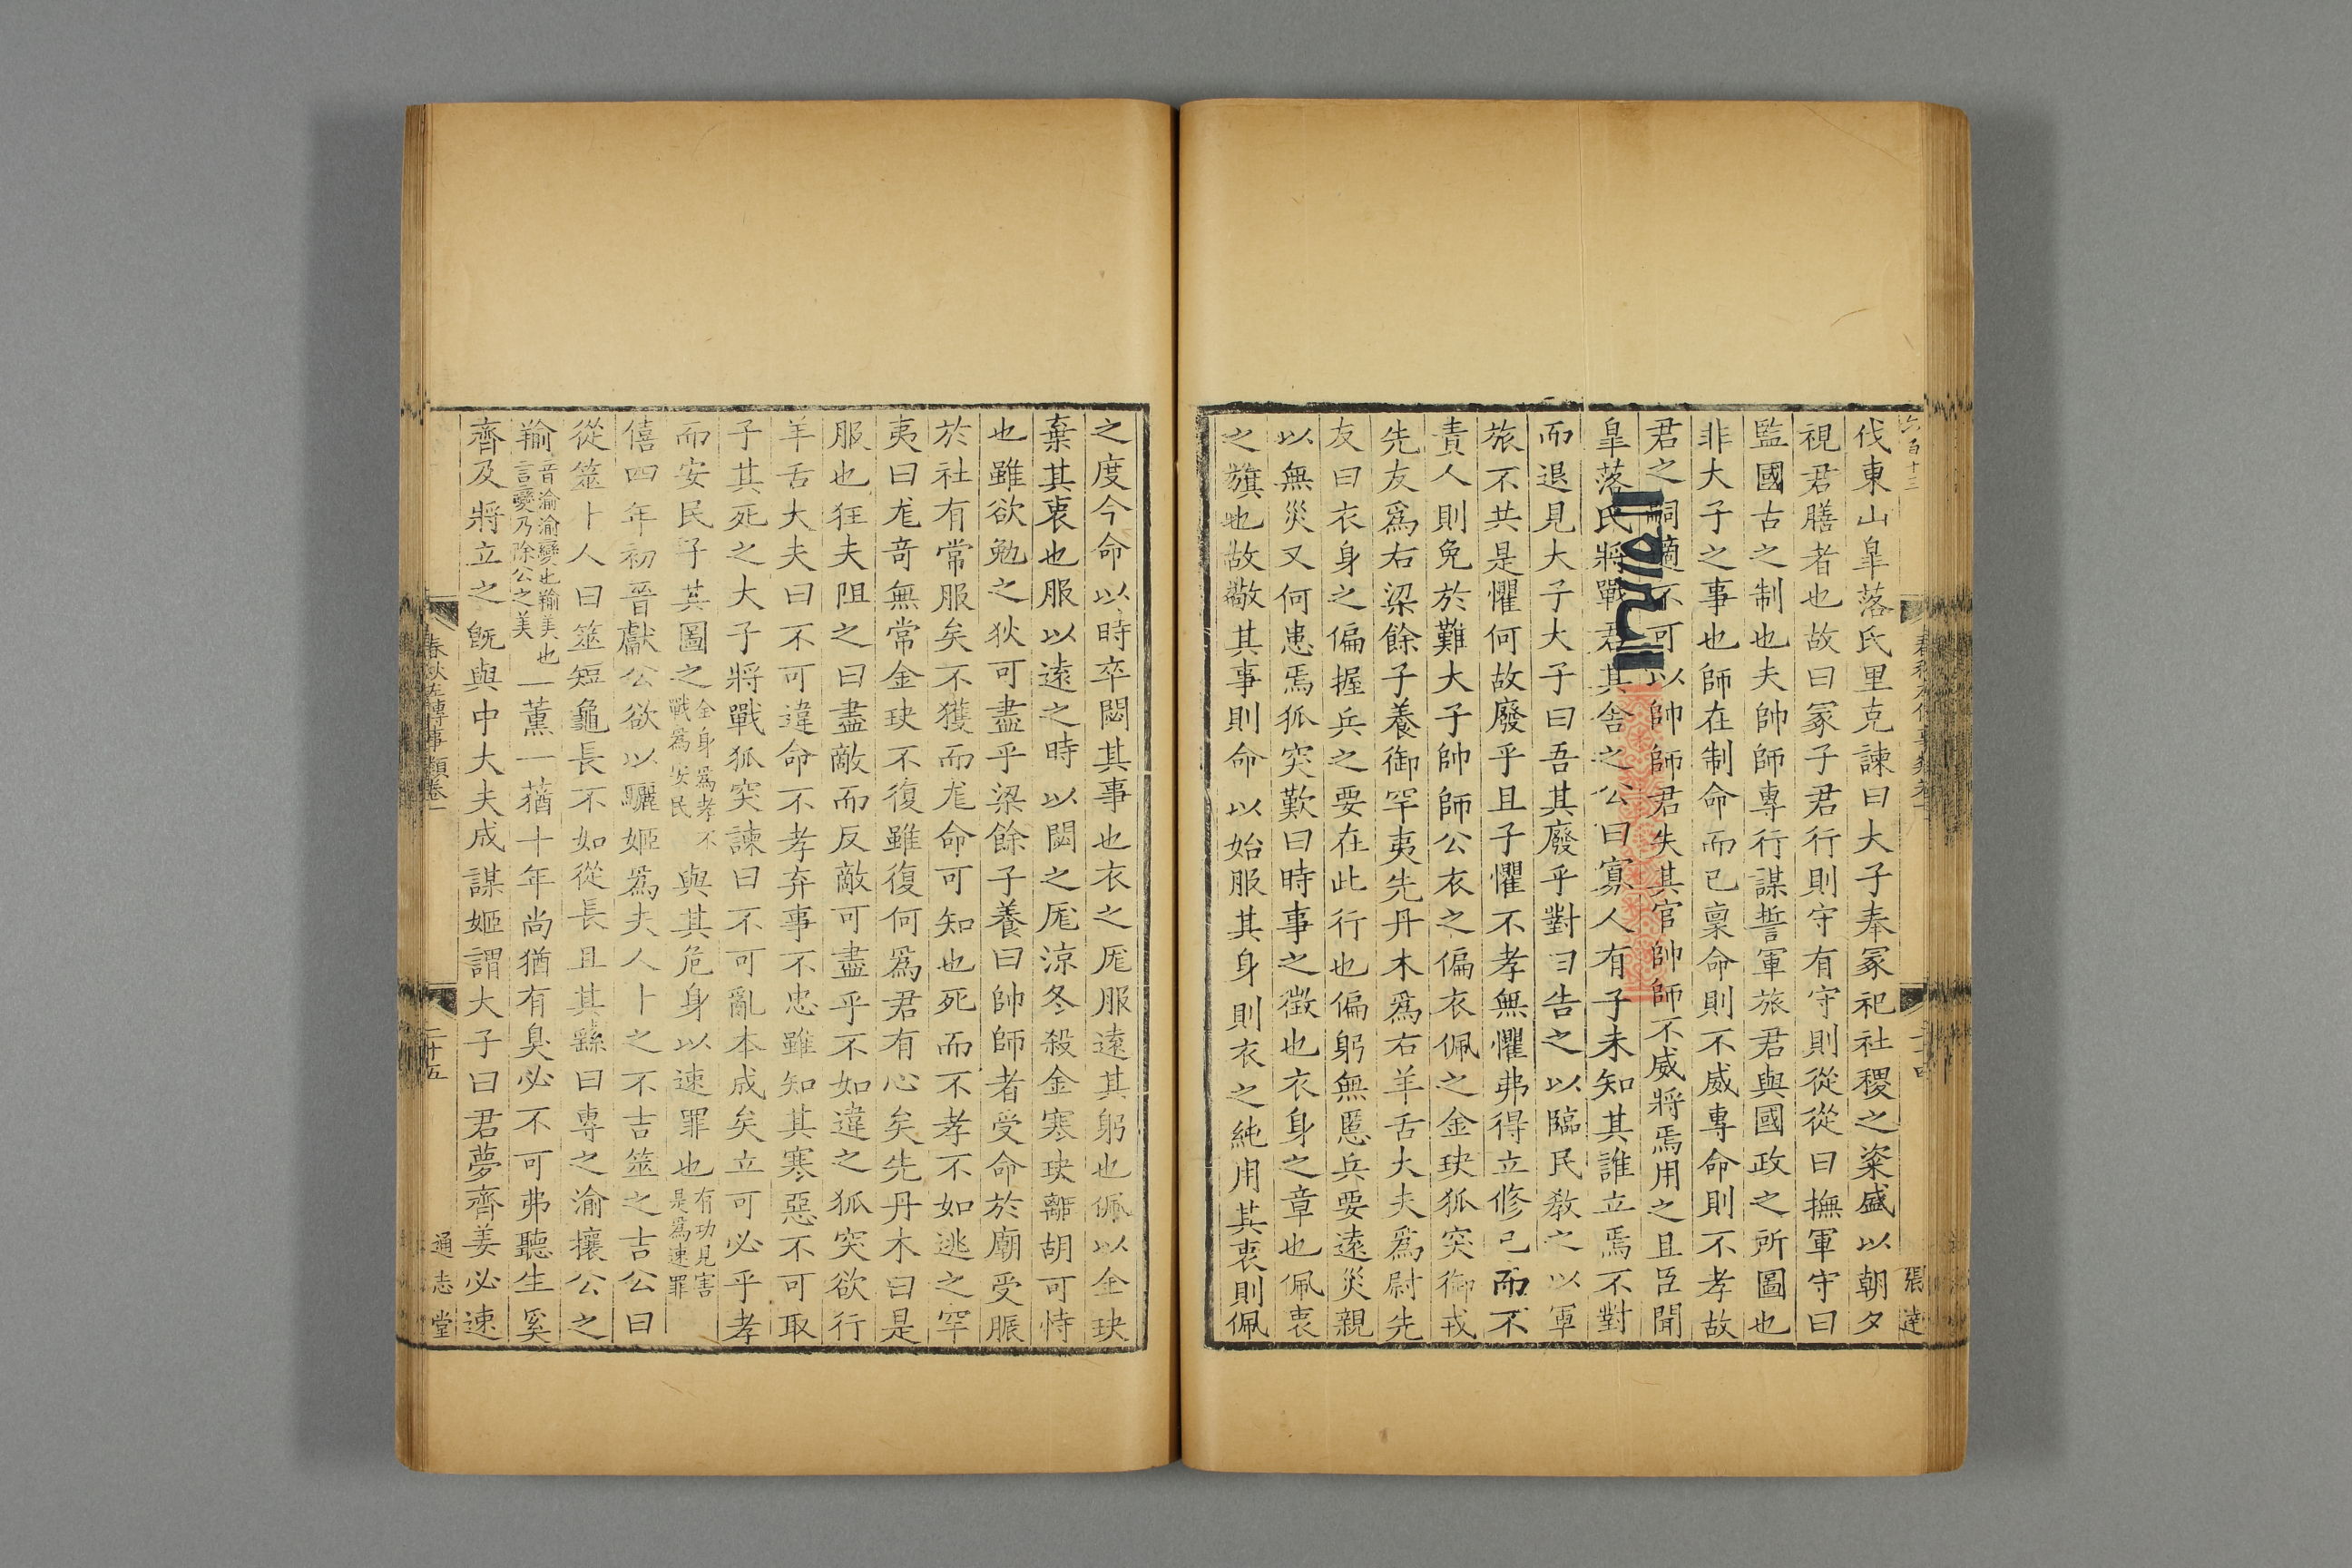 六百十三
伐東山皐落氏里克諫曰大子奉冢祀社稷之粢盛以朝夕
視君膳者也故曰冢子君行則守有守則從從曰撫軍守曰
監國古之制也夫帥師專行謀誓軍旅君與國政之所圖也
非大子之事也師在制命而已稟命則不威專命則不孝故
君之嗣適不可以帥師君失其官帥師不威將焉用之且臣聞
皐落氏將戰君其舍之公曰寡人有子未知其誰立焉不對
而退見大子大子曰吾其廢乎對曰告之以臨民教之以軍
旅不共是懼何故廢乎且子懼不孝無懼弗得立修己而不
責人則免於難大子帥師公衣之偏衣佩之金玦狐突御戎
先友爲右梁餘子養御罕夷先丹木爲右羊舌大夫爲尉先
友曰衣身之偏握兵之要在此行也偏躬無慝兵要遠災親
以無災又何患焉狐突歎曰時事之徵也衣身之章也佩衷
之旗也故敬其事則命以始服其身則衣之純用其衷則佩
張達
之度今命以時卒閟其事也衣之尨服遠其躬也佩以金玦
棄其衷也服以遠之時以閟之尨涼冬殺金寒玦離胡可恃
也雖欲勉之狄可盡乎梁餘子養曰帥師者受命於廟受脤
於社有常服矣不獲而尨命可知也死而不孝不如逃之罕
夷曰尨竒無常金玦不復雖復何爲君有心矣先丹木曰是
服也狂夫阻之曰盡敵而反敵可盡乎不如違之狐突欲行
羊舌大夫曰不可違命不孝弃事不忠雖知其寒惡不可取
子其死之大子將戰狐突諫曰不可亂本成矣立可必乎孝
而安民子其圖之全身爲孝不戰爲安民與其危身以速罪也有功見害是爲速罪
僖四年初晉獻公欲以驪姬爲夫人卜之不吉筮之吉公曰
從筮卜人曰筮短龜長不如從長且其繇曰專之渝攘公之
羭音渝渝變也羭美也言變乃除公之美一薫一蕕十年尚猶有臭必不可弗聽生奚
齊及將立之旣與中大夫成謀姬謂大子曰君夢齊姜必速
春秋左傳事類卷一
二十五
通志堂